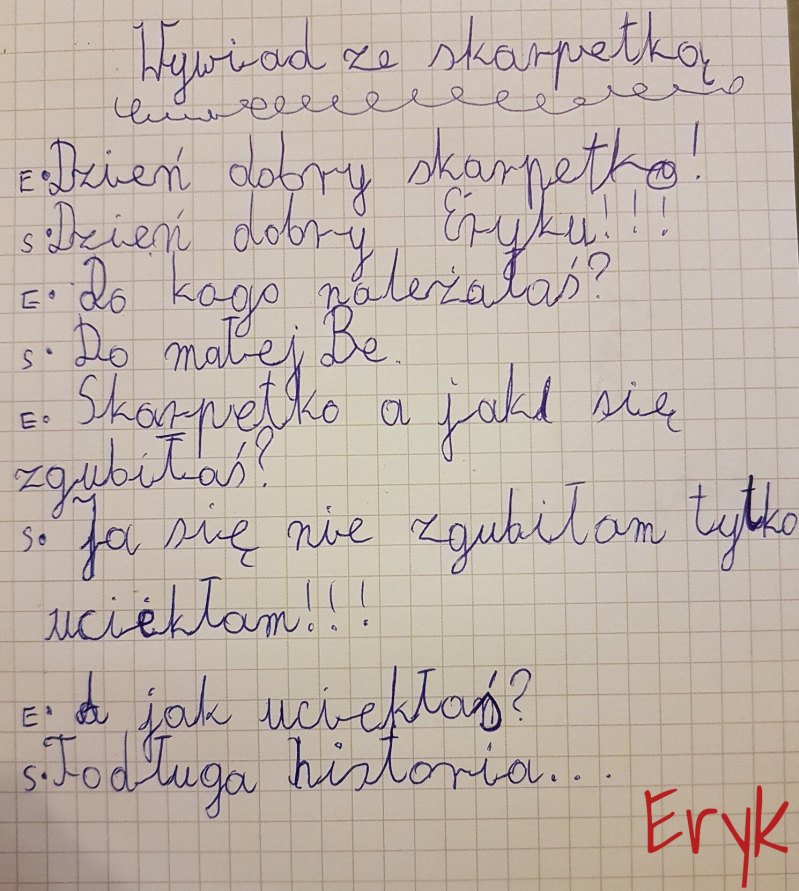 Wywiad ze skarpetką
E: Dzień dobry skarpetko!
S: Dzień dobry Eryku!!!
E: Do kogo należałaś?
S: Do małej Be.
E: Skarpetko a jak się
zgubiłaś?
S: Ja się nie zgubiłam tylko
uciekłam!!!
E: A jak uciekłaś?
S: To długa historia...
Eryk